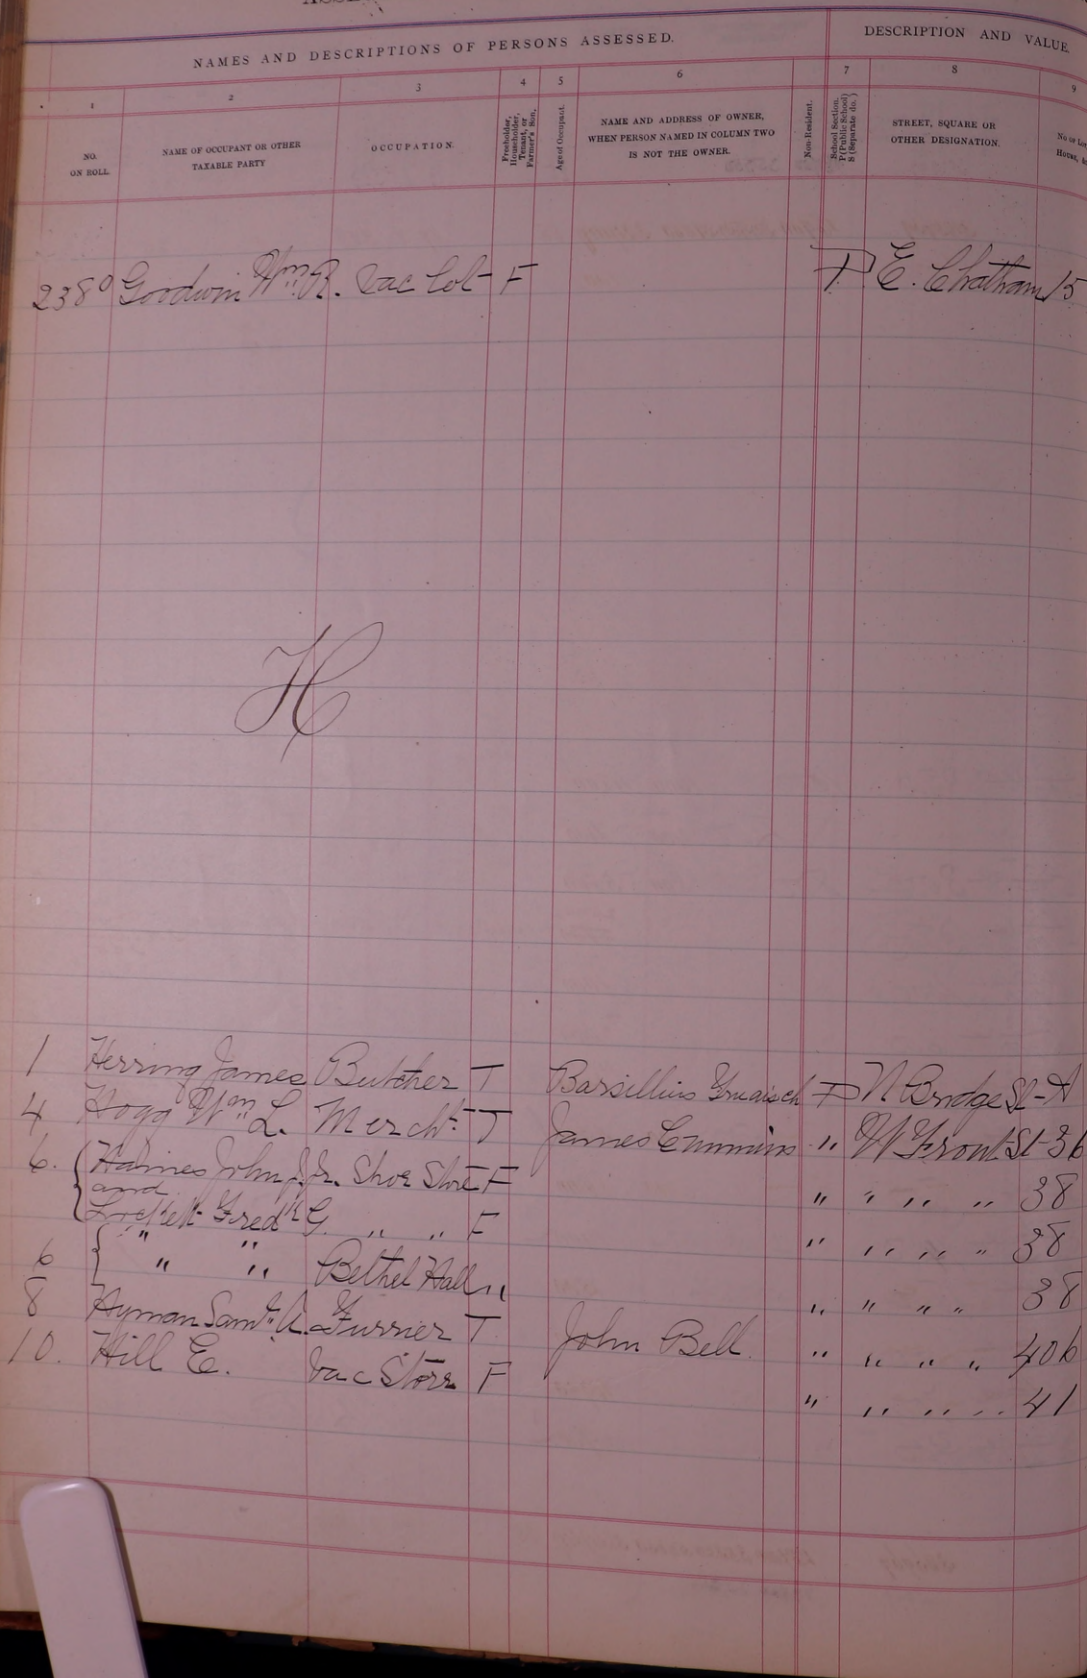 NAMES AND DESCRIPTIONS OF PERSONS ASSESSED. DESCRIPTION AND VALUE
1 2 3 4 5 6 7 8 9
NO. ON ROLL.
NAME OF OCCUPANT OR OTHER TAXABLE PARTY
OCCUPATION
Freeholder, Householder, Tenant, or Farmer's Son.
Age of Occupant.
NAME AND ADDRESS OF OWNER, WHEN PERSON NAMED IN COLUMN TWO IS NOT THE OWNER.
Non-Resident.
School Section. P (Public School) S (Separate do.)
STREET, SQUARE OR OTHER DESIGNATION.
2380 Goodwin Wm R. Vac Lot F P E. Chatham 15
H
1 Herring James Butcher T Barsillius P N Bridge St A
4 Hogg Wm L. Mercht T James Cummins " W Front St 36
6. Haines John J. Jr. Shoe Store F " " " " 38
and
Lockett Fredk G. " " F " " " " 38
" "
6 " " Bethel Hall " " " " " 38
8 Hyman Saml A. Furrier T John Bell. " " " " 40b
10. Hill E. Vac Store F " " " " 41